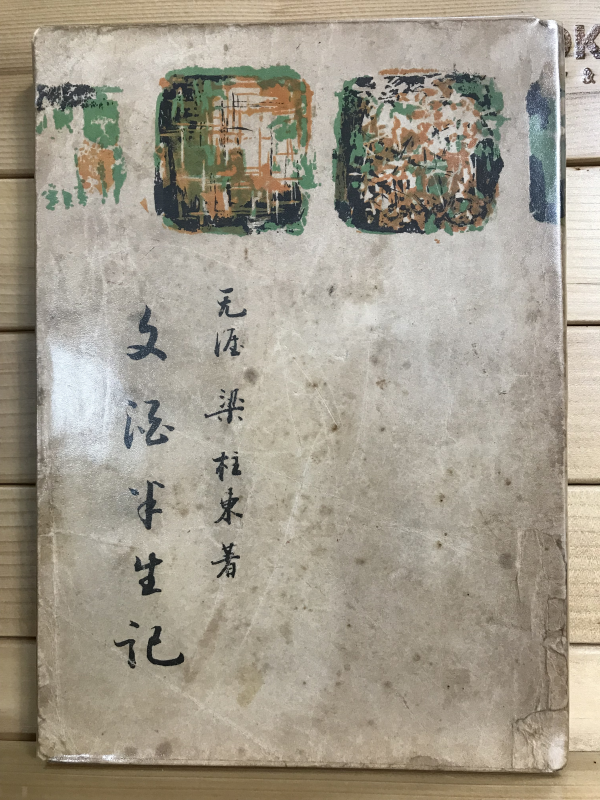 无涯 梁柱東 著
文酒半生記
OK
&